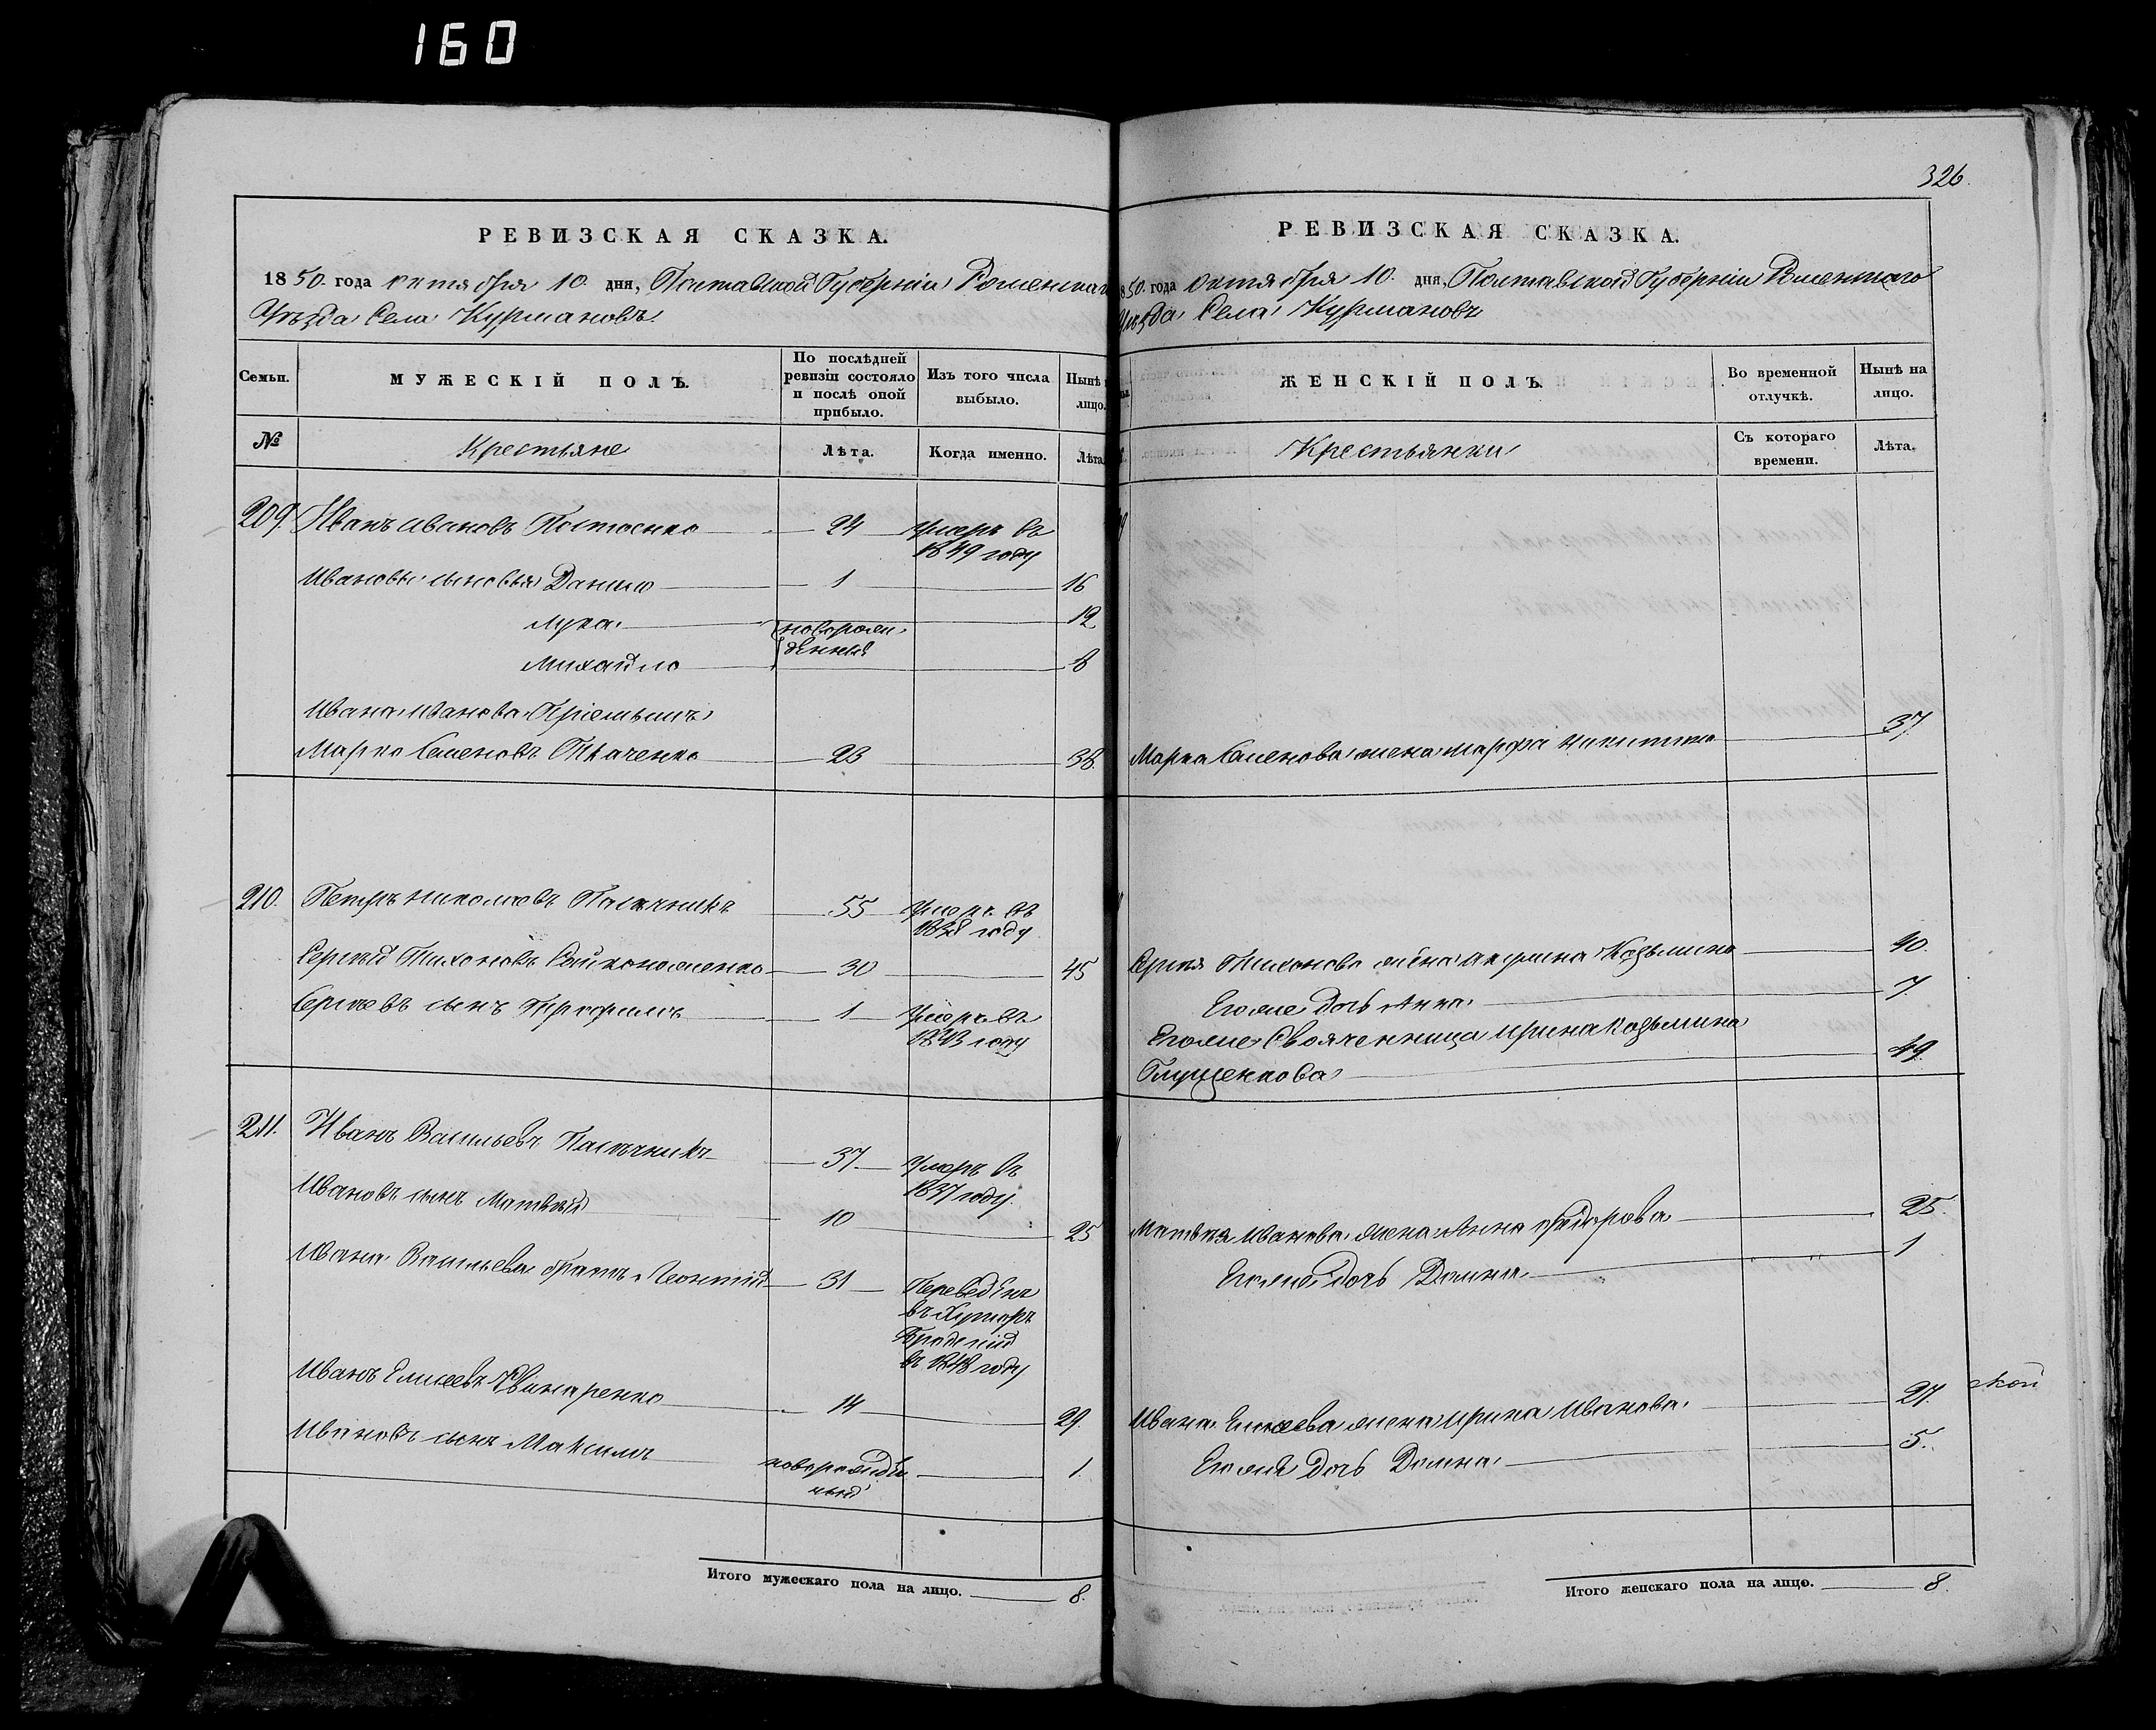 160
326.
РЕВИЗСКАЯ СКАЗКА.
1850. года октября 10. дня, Полтавской Губерніи Роменскаго
Уѣзда Села Курмановъ.
Семьи.
МУЖЕСКІЙ ПОЛЪ.
По послѣдней ревизіи состояло и послѣ оной прибыло.
Изъ того числа выбыло.
Нынѣ лицо.
№
Крестьяне
Лѣта.
Когда именно.
Лѣта
209. Иванъ Ивановъ 24 умеръ въ
1849 году
Ивановы сыновья Данило 1 16
Лука новорож- 12
Михайло денныя 8
Ивана Иванова Пріемышъ
Марко Семеновъ Ткаченко 23 38.
210. Петръ Николаевъ Пасѣчникъ 55 умеръ въ
году
Сергѣй Тихоновъ 30 45
Сергѣевъ сынъ Трофимъ 1 умеръ въ
1843 году
211. Иванъ Васильевъ Пасѣчникъ 37. умеръ въ
1837 году.
Ивановъ сынъ Матвѣй 10 25
Ивана Васильева братъ Леонтій 31 Переведенъ
въ Хуторъ
въ 1848 году
Иванъ Елисеевъ 14 29.
Ивановъ сынъ Максимъ новорожден- 1.
ный
Итого мужескаго пола на лицо. 8.
РЕВИЗСКАЯ СКАЗКА.
850. года октября 10. дня, Полтавской Губерніи Роменскаго
Уѣзда Села Курмановъ
ЖЕНСКІЙ ПОЛЪ.
Во временной отлучкѣ.
Нынѣ на лицо.
Крестьянки
Съ котораго времени.
Лѣта.
Марка Семенова жена Марфа Никитина 37.
Сергѣя Тихонова жена Акулина Козьмина 40.
Егоже дочь Анна 7.
Егоже Свояченница Ирина Козьмина
Глущенкова 49.
Матвѣя Иванова жена Анна Федорова 25.
Егоже дочь Домна 1
Ивана Елисеева жена Ирина Иванова 27.
Егоже дочь Домна 5.
Итого женскаго пола на лицо. 8.